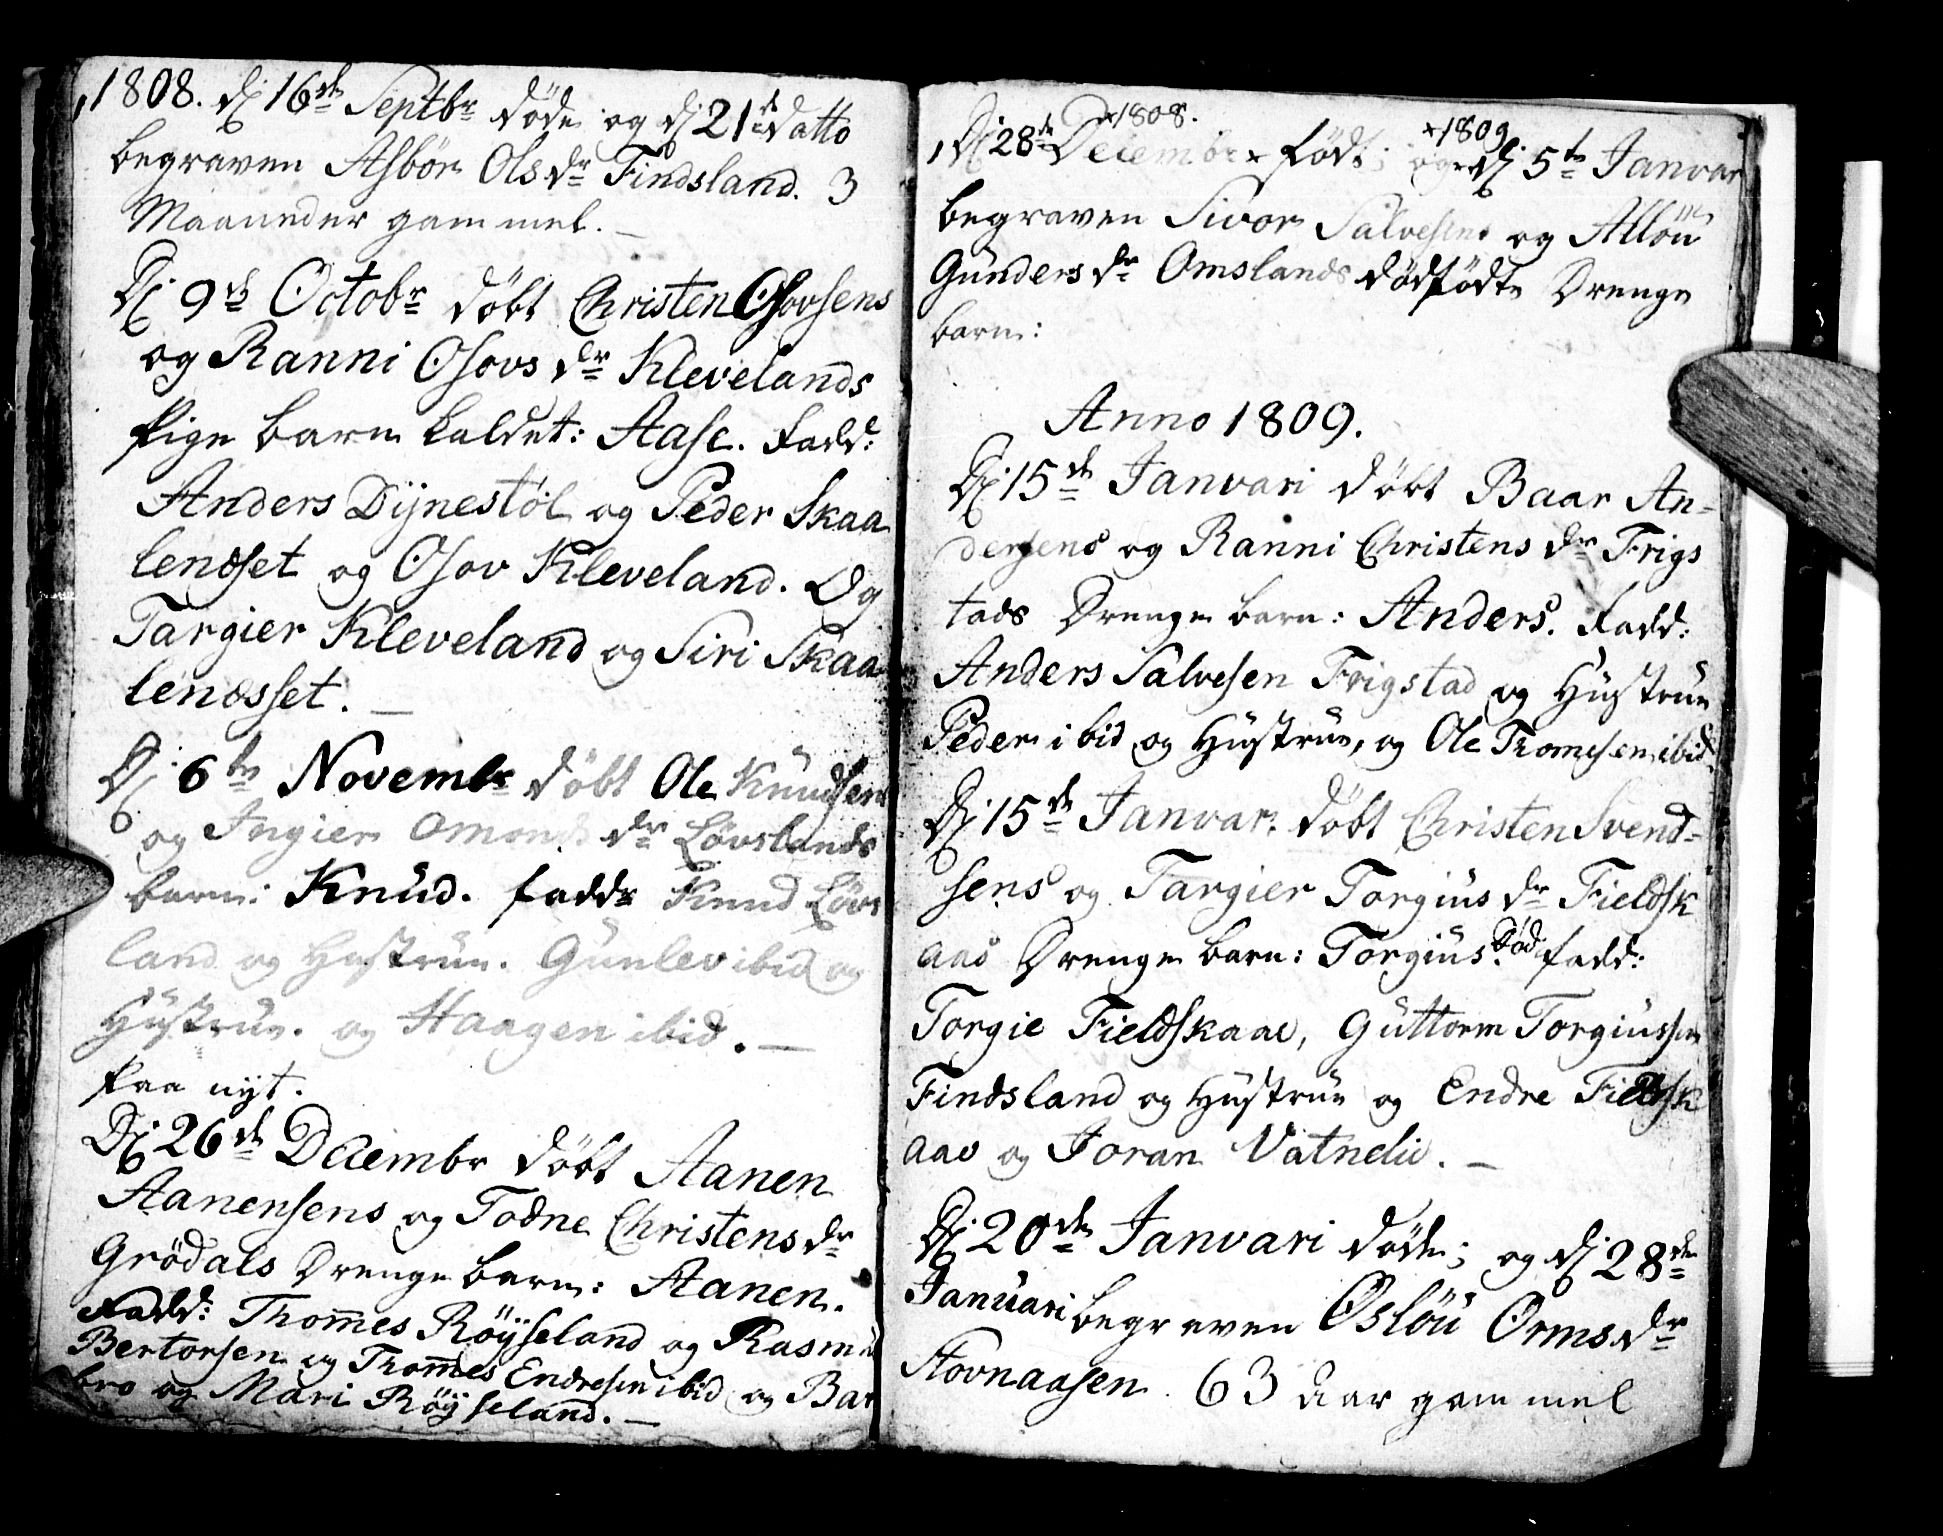 1808. Dj 16de Septbr døde og dj 21de datto
begraven Asbør Olsdr Findsland. 3
Maaneder gammel. —
Dj 9de Octobr døbt Christen Osovsens
og Ranni Osovs dr Klevelands
Pige barn kaldet: Aase. Fadd:
Anders Dÿnestøl og Peder Skaa
lendset og Osov Kleveland. Og
Targier Kleveland og Siri Skaa
lendsset. —
Dj 6te Novembr døbt Ole Knudsens
og Ingier Omonds dr Løvslands
barn: Knud. faddr Knud Løvs
land og Hustrue. Gunlev ibid og
Hustrue. og Haagen ibid. —
paa nÿt.
Dj 26de Decembr døbt Aanen
Aanensens og Todne Christensdr
Grødals Drenge barn: Aanen.
Fadd: Thom̅es Røÿseland og Rasmu
Bertorsen og Thom̅es Endresen ibid og Bar
bro og Mari Røÿseland. —
1808. 1809
Dj 28de December født; og dj 5te Janvar
begraven Sivor Salvesens og Alløu
Gunders dr Omslands dødfødte Drenge
barn:
Anno 1809.
Dj 15de Janvari døbt Baar An-
dersens og Ranni Christens dr Frigs
tads Drenge barn: Anders. Fadd:
Anders Salvesen Frigstad og Hustrue
Peder ibid og Hustrue, og Ole Thomesen ibid
Dj 15de Janvar. døbt Christen Svend-
sens og Targier Torgius dr Fieldsk
aas Drenge barn: Torgius. Død fadd:
Torgie Fieldskaae, Guttorm Torgiussen
Findsland og Hustrue og Endre Fieldsk
aas og Joran Vatnelie. —
Dj 20de Janvari døde; og dj 28de
Januari begraven Osløu Ormsdr
Stovnaasen. 63 Aar gammel